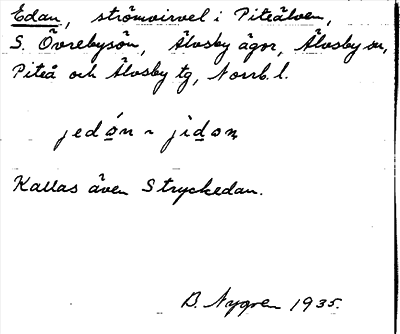 Edan, strömvirvel i Piteälven,
S. Övrebysön, Älvsby ägor, Älvsby sn,
Piteå och Älvsby tg, Norrb. l.
jedón ~ jìdon
Kallas även Stryckedan.
B. Nygren 1935.